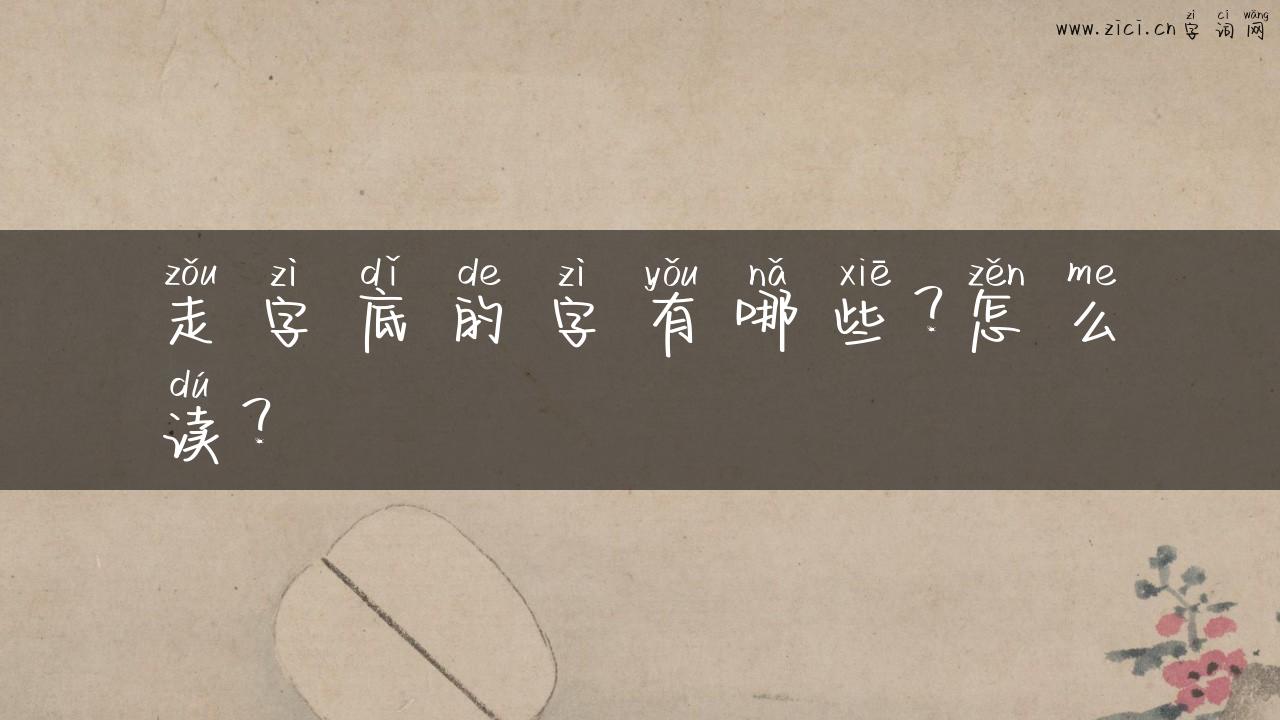 zì cí wǎng
www.zici.cn字词网
zǒu zì dǐ de zì yǒu nǎ xiē zěn me
走字底的字有哪些？怎么
dú
读？